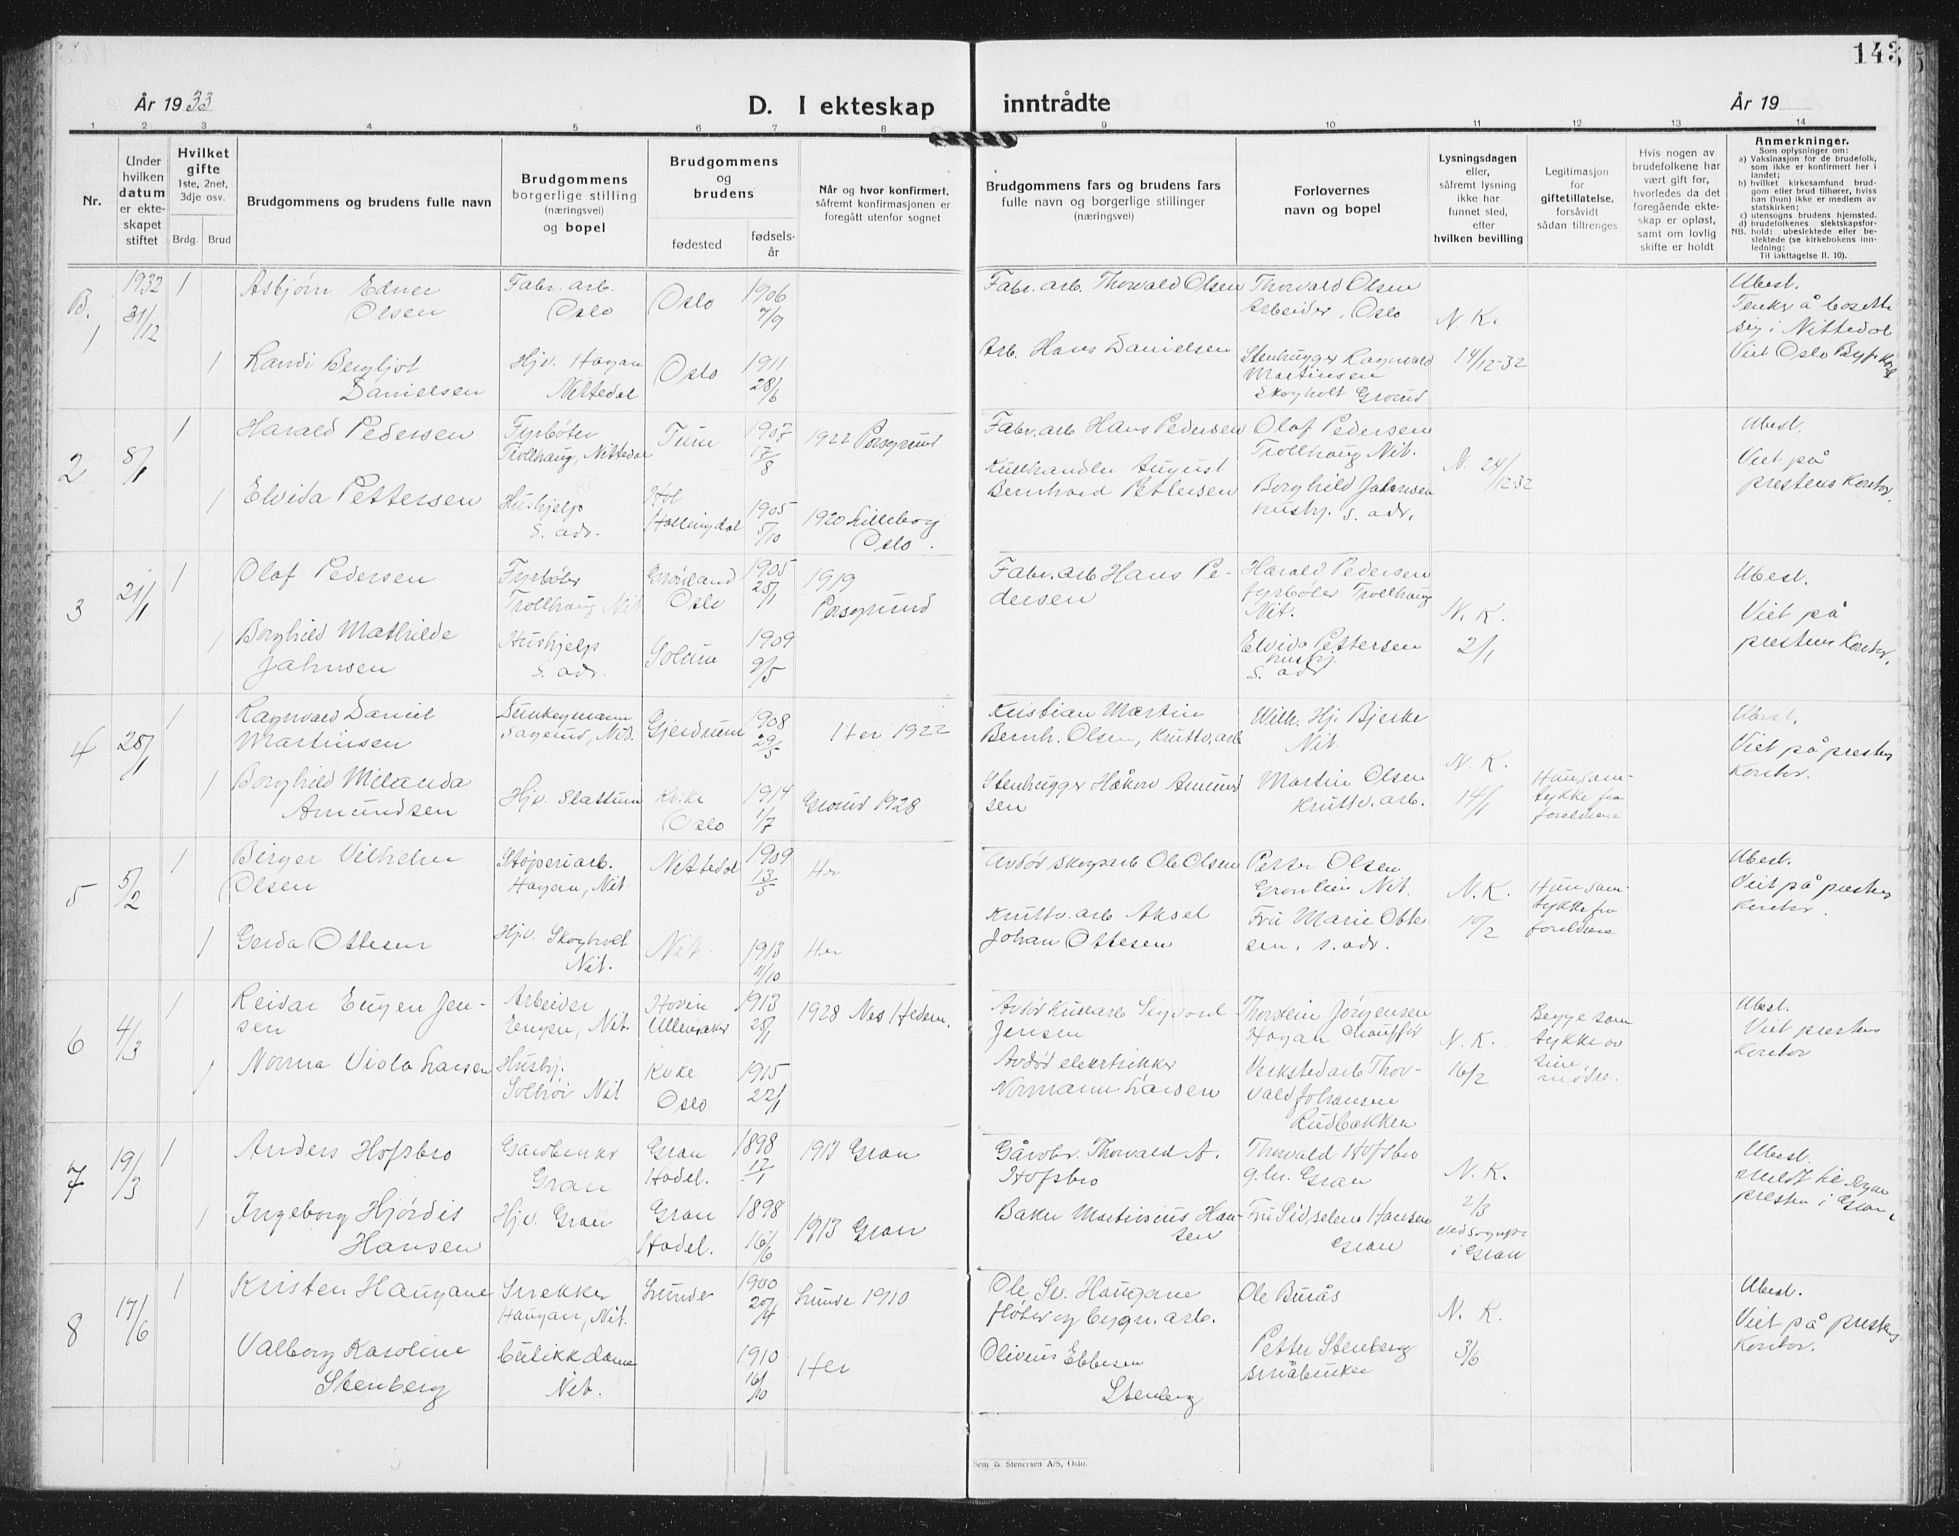 143
År 1933
D. I ekteskap inntrådte
År 19
1 2 3 4 5 6 7 8 9 10 11 12 13 14
Nr.
Under hvilken datum er ekteskapet stiftet
Hvilket gifte
1ste, 2net, 3dje osv.
Brdg. Brud
Brudgommens og brudens fulle navn
Brudgommens borgerlige stilling (næringsvei) og bopel
Brudgommens og brudens
fødested
fødselsår
Når og hvor konfirmert, såfremt konfirmasjonen er foregått utenfor sognet
Brudgommens fars og brudens fars fulle navn og borgerlige stillinger (næringsvei)
Forlovernes navn og bopel
Lysningsdagen eller, såfremt lysning ikke har funnet sted, efter hvilken bevilling
Legitimasjon for giftetillatelse, forsåvidt sådan tiltrenges
Hvis nogen av brudefolkene har vært gift før, hvorledes da det foregående ekteskap er opløst, samt om lovlig skifte er holdt
Anmerkninger.
Som oplysninger om:
a) Vaksinasjon for de brudefolk, som ikke er konfirmert her i landet;
b) hvilket kirkesamfund brudgom eller brud tilhører, hviss han (hun) ikke er medlem av statskirken;
c) utensogns brudens hjemsted.
d) brudefolkenes slektskapsforhold: ubeslektede eller beslektede (se kirkebokens innledning:
NB. Til iakttagelse II. 10).
B. 1
1932 31/12
1
Asbjørn Edner Olsen
Fabr. arb. Oslo
Oslo
1906 7/9
Fabr. arb. Thorvald Olsen
Thorvald Olsen Arbeider, Oslo
N. K. 14/12-32
Ubest.
Tenker å bosette sig i Nittedal
Viet Oslo Byf.kont
1
Randi Bergljot Danielsen
Hjv. Hagan Nittedal
Oslo
1911 28/6
Arb. Hans Danielsen
Stenhugger Ragnvald Martinsen Skogholt Grorud
2
8/1
1
Harald Pedersen
Fyrbøter Trollhaug, Nittedal
1907 17/8
1922 Porsgrund
Fabr. arb Hans Pedersen
Olaf Pedersen Trollhaug Nit.
N. 24/12-32
Ubest.
Viet på prestens kontor.
1
Elvida Pettersen
Hushjelp s. adr.
Hol Hallingdal
1905 5/10
1920 Lilleborg Oslo.
Kullhandler August Bernhard Pettersen
Borghild Jahnsen hushj. s. adr.
3
21/1
1
Olaf Pedersen
Fyrbøter Trollhaug Nit
Grønland Oslo
1905 25/1
1919 Porsgrund
Fabr. arb Hans Pedersen
Harald Pedersen fyrbøter Trollhaug Nit.
N. K. 2/1
Ubest.
Viet på prestens kontor.
1
Borghild Mathilde Jahnsen
Hushjelp s. adr.
Solum
1909 9/5
Elvida Pettersen hushj s. adr.
4
28/1
1
Ragnvald Daniel Martinsen
Sagerud, Nit.
Gjerdrum
1908 29/5
Her 1922
Kristian Martin Bernh. Olsen, Kruttv. arb
Wilh. Hj. Bjerke Nit.
N. K. 14/1
Ubest.
Viet på prestens kontor.
1
Borghild Milanda Amundsen
Hjv. Slattum
Oslo
1914 1/7
Grorud 1928
Stenhugger Håkon Amundsen
Martin Olsen Kruttv. arb.
Hun samtykke fra foreldrene
5
5/2
1
Birger Vilhelm Olsen
Støperiarb. Hagan, Nit.
Nittedal
1909 13/5
Her
Avdør skogsarb Ole Olsen
Petter Olsen Grønlien Nit.
N. K. 10/2
Hun samtykke fra foreldrene
Ubest.
Viet på prestens kontor.
1
Gerda Ottesen
Hjv. Skoghvel Nit.
Nit.
1913 4/10
Her
Kruttv. arb Aksel Johan Ottesen
Fru Marie Ottesen, s. adr.
6
4/3
1
Reidar Eugen Jensen
Arbeider Engen, Nit.
Hovin Ullensaker
1913 28/1
1928 Nes Hedm.
Sigvard Jensen
Thorstein Jørgensen Hagan Chauffør
N. K. 16/2
Begge samtykke av sine mødre.
Ubest.
Viet prestens kontor
1
Norma Viola Larsen
Hushj. Solhøi Nit
Oslo
1915 22/1
Avdød elektrikker Normann Larsen
Verkstedarb Thorvald Johansen Rudbakken
7
19/3
1
Anders Hofsbro
Gardbruker Gran
Gran Hadel.
1898 17/1
1913 Gran
Gårdbr. Thorvald A. Hofsbro
Thorvald Hofsbro g.br. Gran
N. K. 2/3
i Gran
Ubest.
Meldt til sognepresten i Gran.
1
Ingeborg Hjørdis Hansen
Hjv. Gran
Gran Hadel.
1898 16/6
1913 Gran
Baker Martinius Hansen
Fru Sidselene Hansen Gran
8
17/6
1
Kristen Haugane
Snekker Haugan, Nit.
Lunde
1900 20/4
Lunde 1910
Ole Sv. Haugane fløter og bygn. arb.
Ole Burås
N. K. 3/6
Ubest.
Viet på prestens kontor.
Valborg Karoline Stenberg
Butikkdame Nit.
1910 16/10
Her
Olivius Ebbesen Stenberg
Petter Stenberg småbruker
Sem & Stenersen A/S, Oslo.